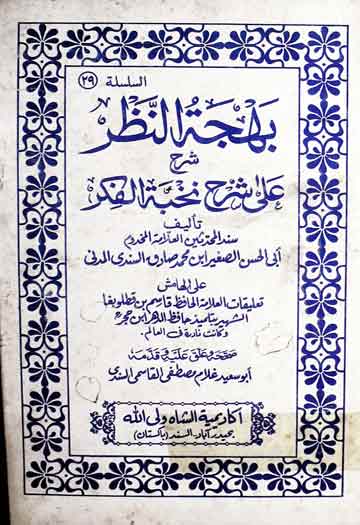 السلسلة ٢٩
بهجة النظر
شرح
على شرح نخبة الفكر
تأليف
سند المحدثين العلامة المخدوم
أبي الحسن الصغير ابن محمد صادق السندى المدنى
على الهامش
تعليقات العلامة الحافظ قاسم بن قطلوبغا
الشهير بتلميذ حافظ الدهر ابن حجر
وكانت نادرة فى العالم.
صححه علق عليه قدمه
أبو سعيد غلام مصطفى القاسمى السندى
أكاديمية الشاه ولى الله
بحيدرآباد السند (باكستان)